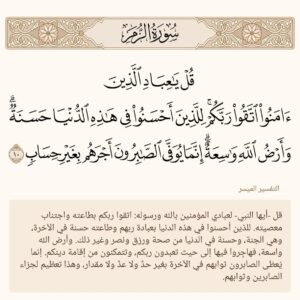 سُورَةُ الزُّمَرِ
قُلْ يَٰعِبَادِ ٱلَّذِينَ
ءَامَنُوا۟ ٱتَّقُوا۟ رَبَّكُمْ ۚ لِلَّذِينَ أَحْسَنُوا۟ فِى هَٰذِهِ ٱلدُّنْيَا حَسَنَةٌ ۗ
وَأَرْضُ ٱللَّهِ وَٰسِعَةٌ ۗ إِنَّمَا يُوَفَّى ٱلصَّٰبِرُونَ أَجْرَهُم بِغَيْرِ حِسَابٍ ١٠
التفسير الميسر
قل -أيها النبي- لعبادي المؤمنين بالله ورسوله: اتقوا ربكم بطاعته واجتناب
معصيته. للذين أحسنوا في هذه الدنيا بعبادة ربهم وطاعته حسنة في الآخرة،
وهي الجنة، وحسنة في الدنيا من صحة ورزق ونصر وغير ذلك. وأرض الله
واسعة، فهاجروا فيها إلى حيث تعبدون ربكم، وتتمكنون من إقامة دينكم. إنما
يُعطَى الصابرون ثوابهم في الآخرة بغير حدّ ولا عدّ ولا مقدار، وهذا تعظيم لجزاء
الصابرين وثوابهم.